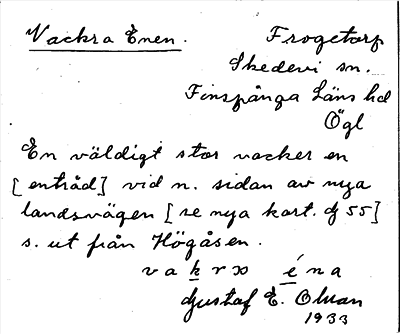 Vackra Enen.
Frogetorp
Skedevi sn.
Finspånga Läns hd
Ögl
En väldigt stor vacker en
[enträd] vid n. sidan av nya
landsvägen [se nya kart. dj 55]
s. ut från Högåsen.
vakrɔ éna
Gustaf E. Olman
1933